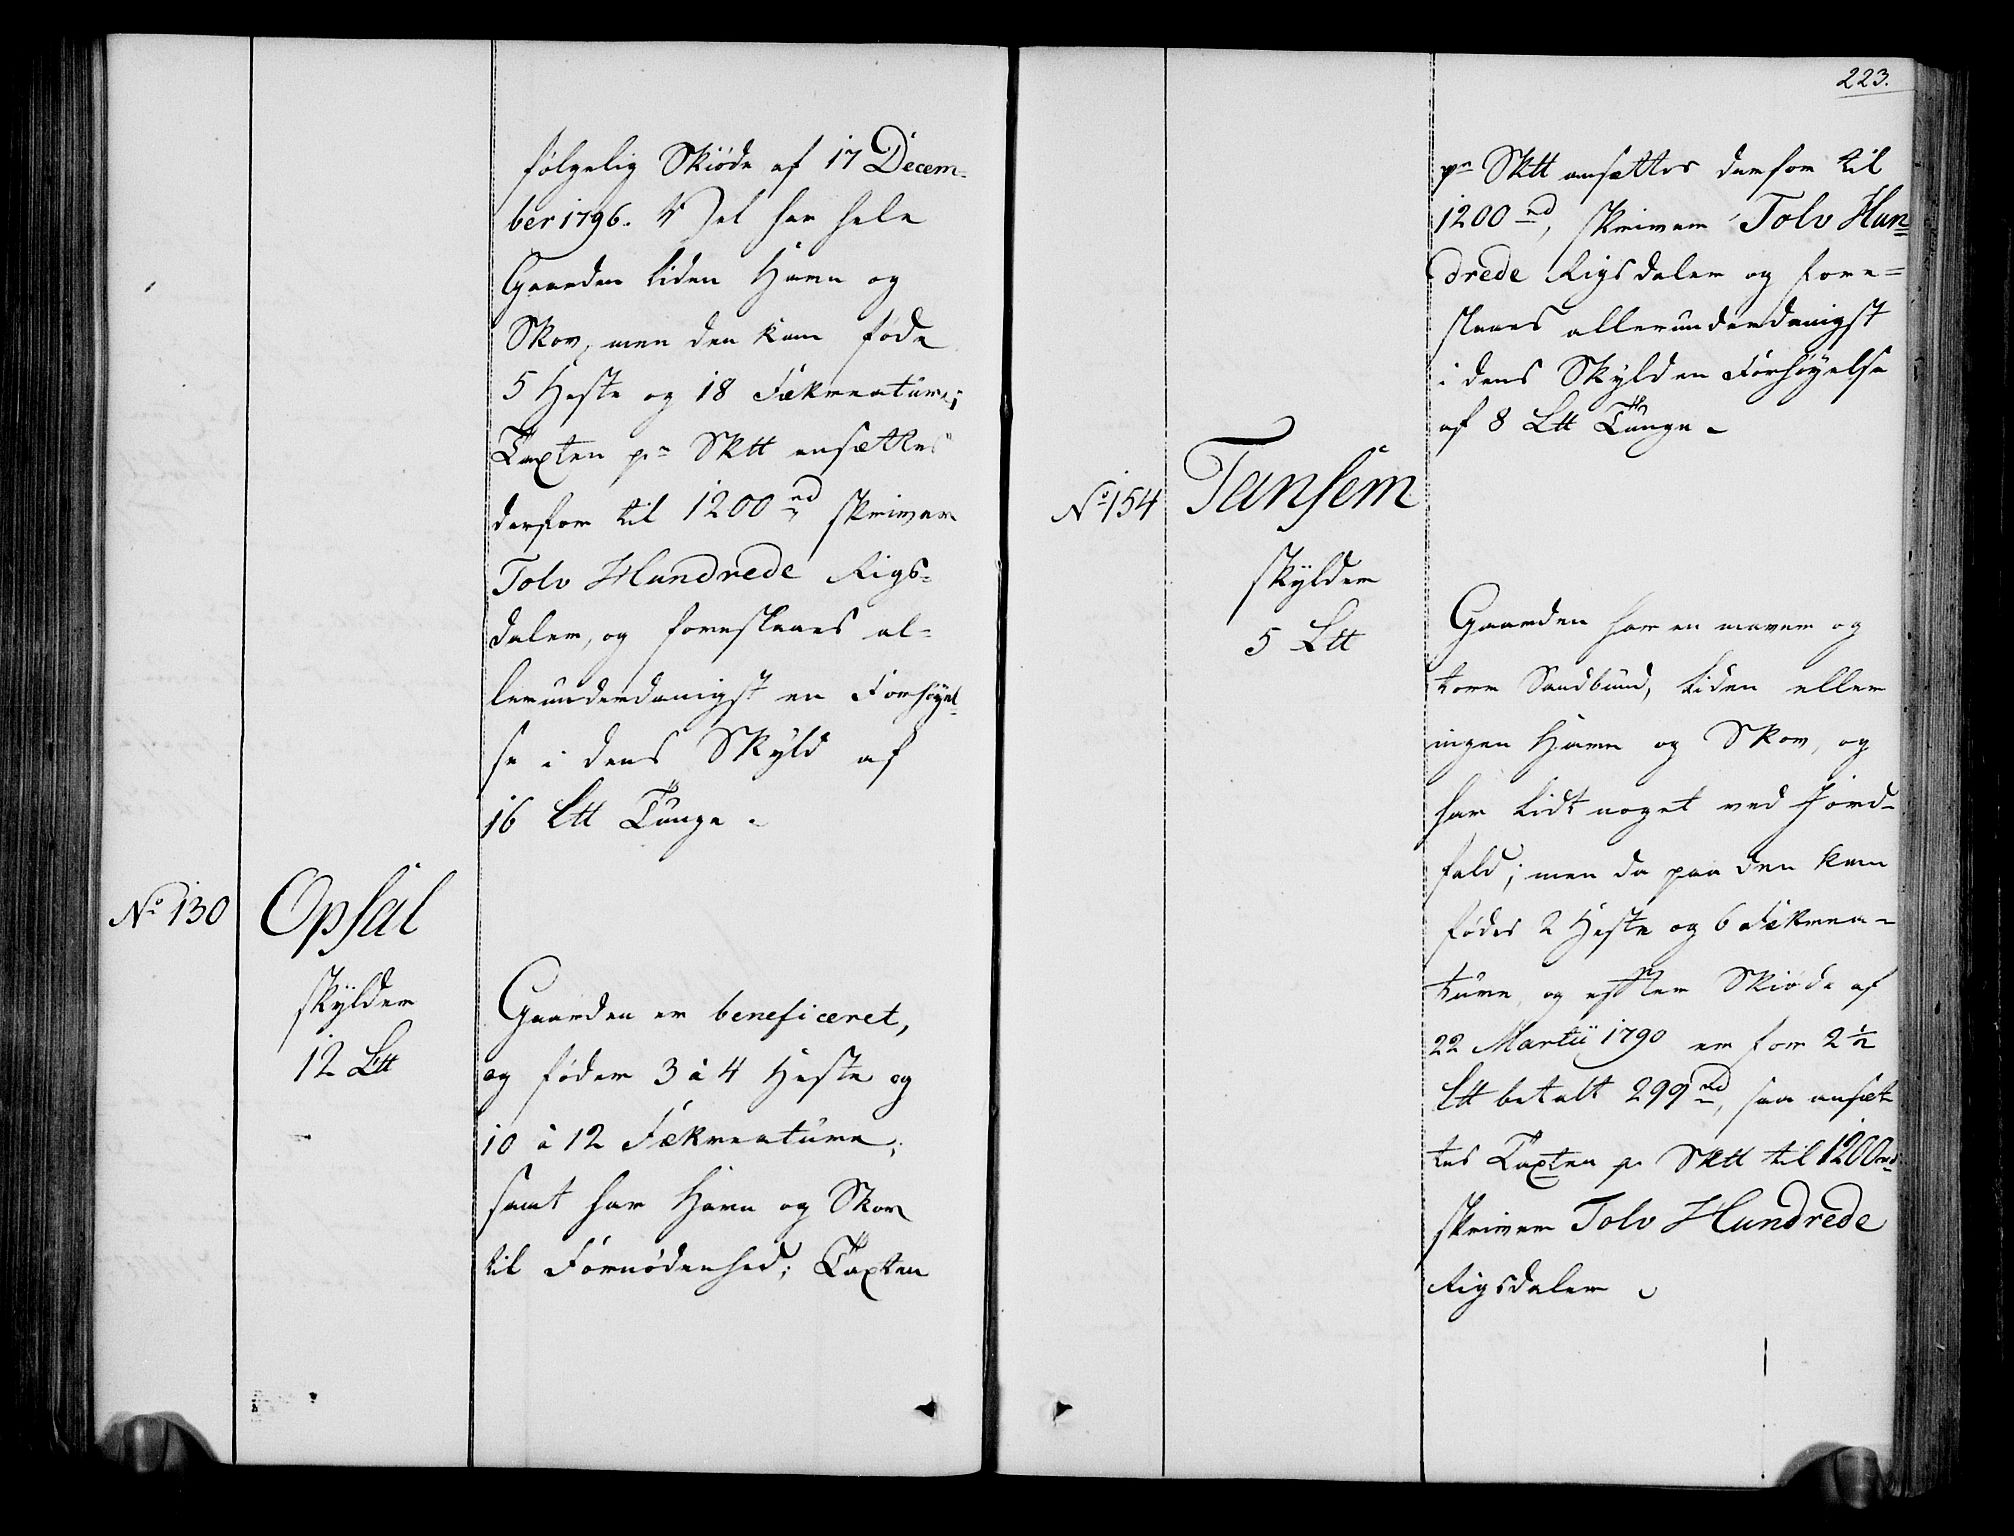 følgelig Skiøde af 17 Decem-
ber 1796. Vel har hele
Gaarden liden Havn og
Skov, men den kan føde
5 Heste og 18 Fækreature;
Taxten pr Sktt ansættes
derfor til 1200 rd skriver
Tolv Hundrede Rigs-
daler, og foreslaaes al-
lerunderdanigst en Forhøyel-
se i dens Skyld af
16 Ltt Tunge.
No 130
Opsal
skylder
12 Ltt
Gaarden er beneficeret,
og føder 3 à 4 Heste og
10 à 12 Fækreature,
samt har Havn og Skov
til Fornødenhed; Taxten
223.
pr Sktt ansættes derfor til
1200 rd, skriver Tolv Hun-
drede Rigsdaler og fore=
slaaes allerunderdanigst
i dens Skyld en Forhøyelse
af 8 Ltt Tunge.
No 154
Tansem
skylder
5 Ltt
Gaarden har en maver og
tør Sandbund, liden eller
ingen Havn og Skov, og
har lidt noget ved Jord-
fald; men da paa den kan
fødes 2 Heste og 6 Fækrea-
ture, og efter Skiøde af
22 Martii 1790 er for 2½
Ltt betalt 299 rd, saa ansæt-
tes Taxten pr Sktt til 1200 rd
skriver Tolv Hundrede
Rigsdaler